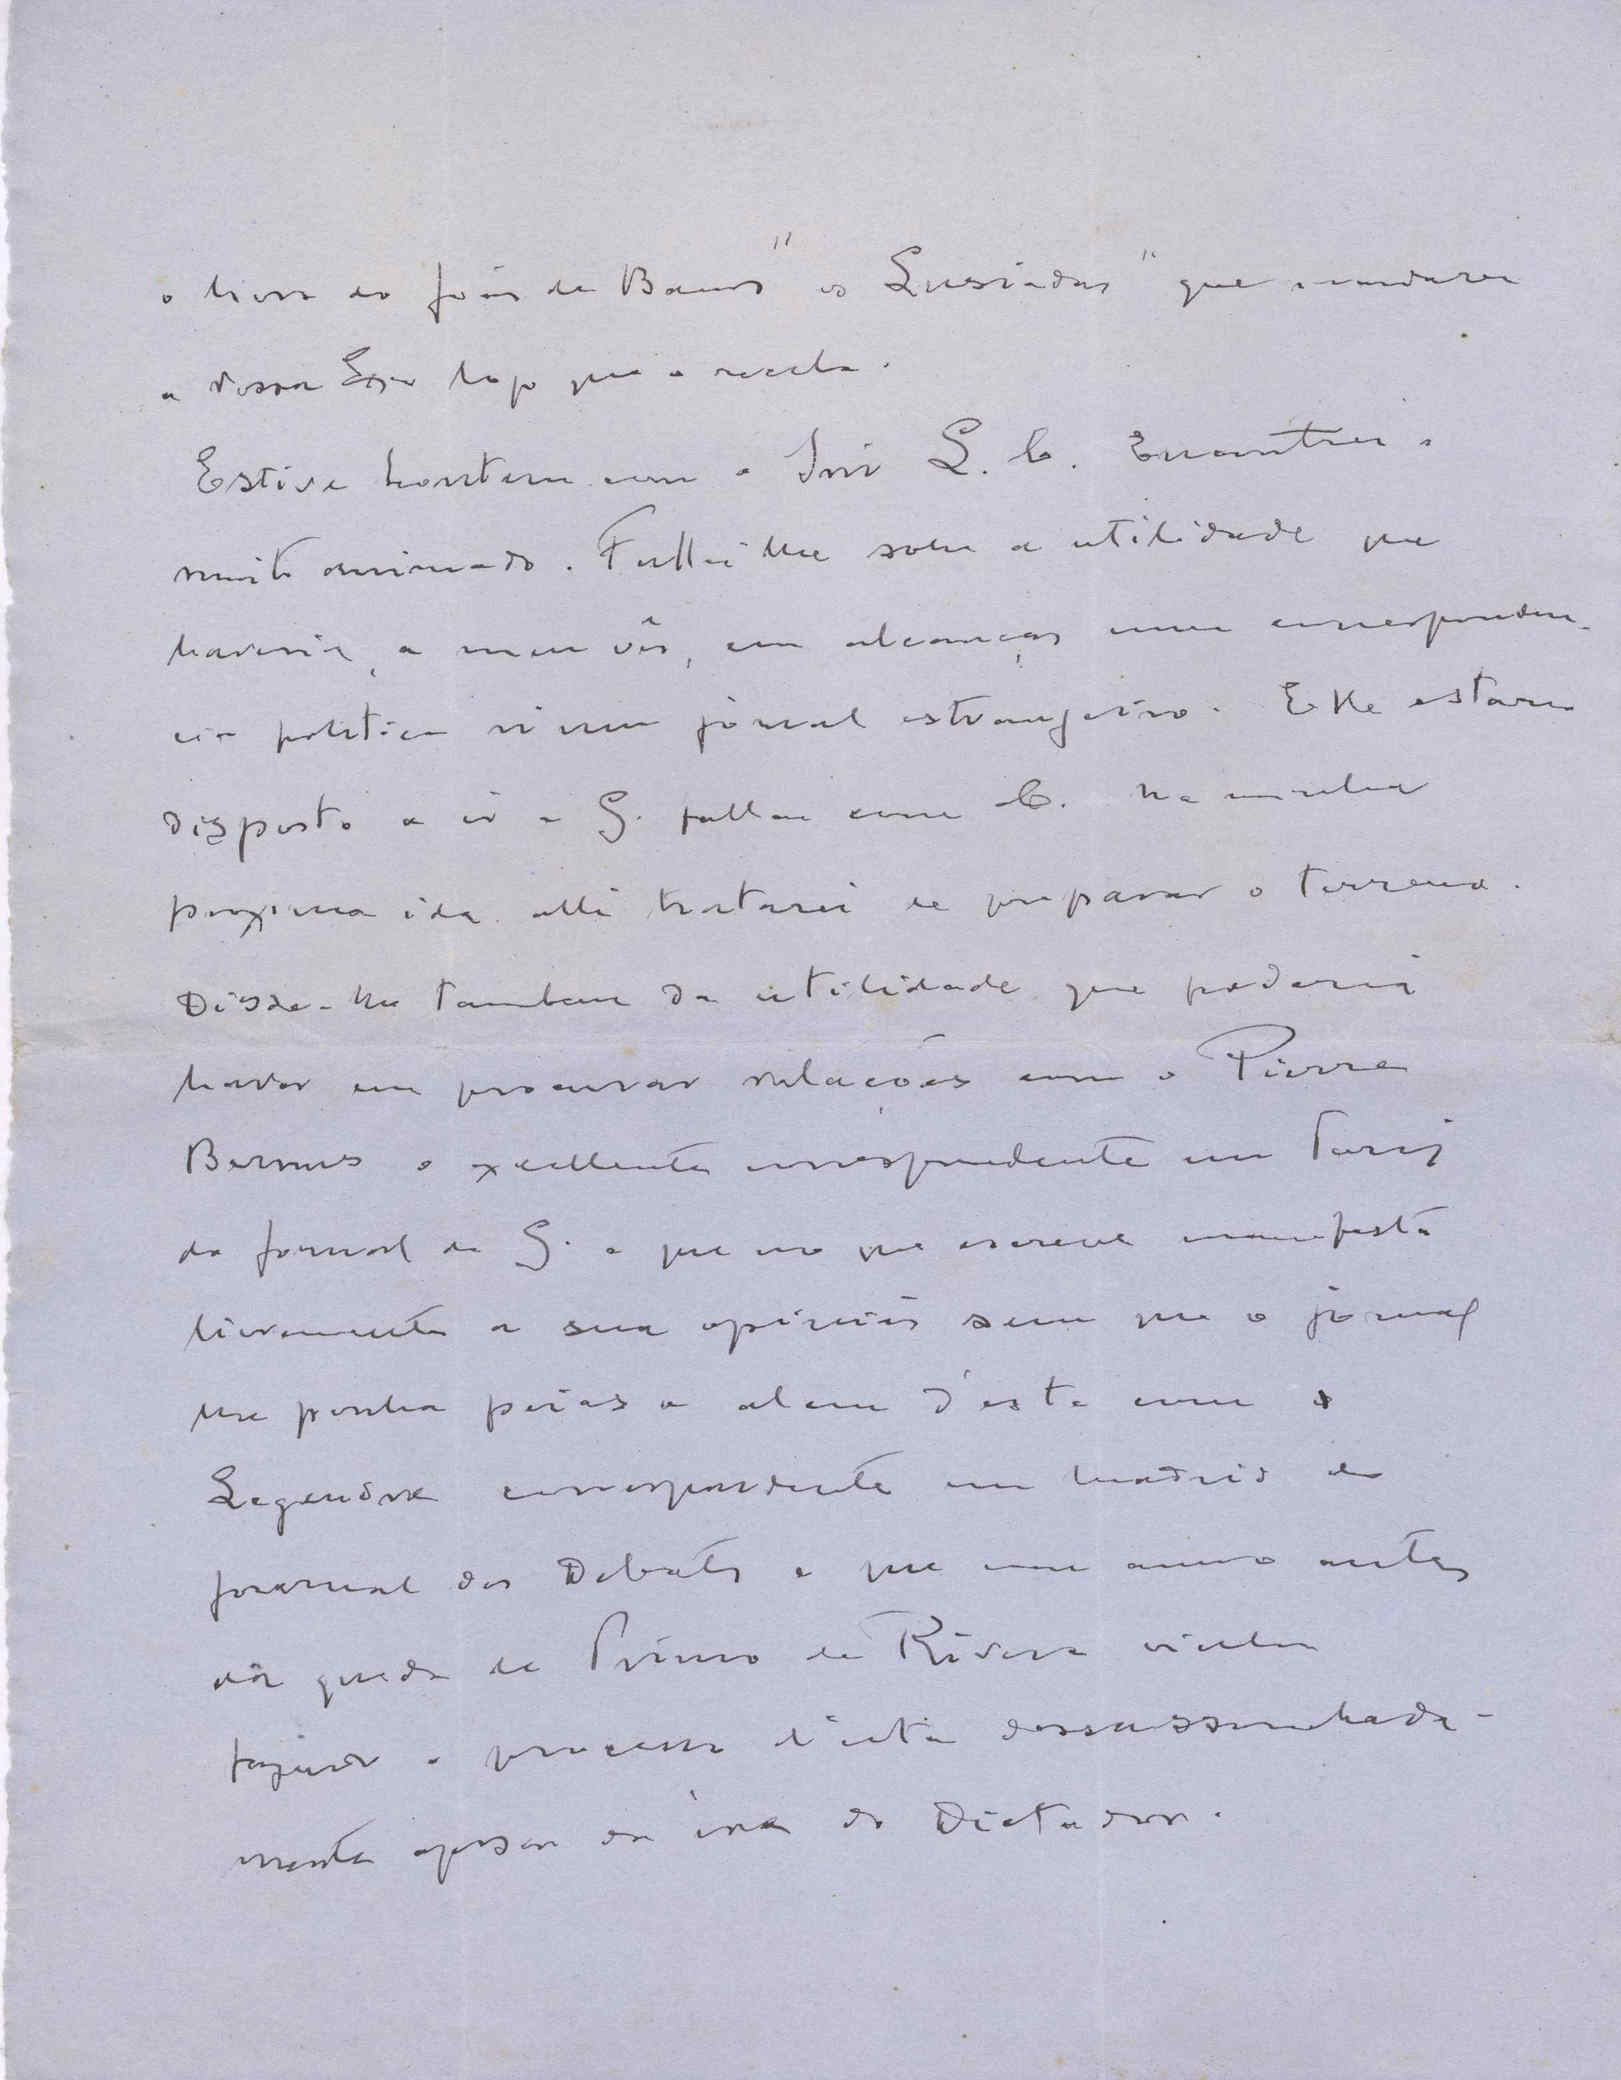 o livro do João de Barros "os Lusiadas" que mandarei
a Vossa Exa logo que o receba.
Estive hontem com o Snr L. C. Encontrei o
muito animado. Fallei lhe sobre a utilidade que
haveria, a meu vêr, em alcançar uma corresponden-
cia politica n'um jornal estrangeiro. Elle estaria
disposto a ir a G. fallar com C. Na minha
proxima ida alli tratarei de preparar o terreno.
Disse-lhe tambem da utilidade que poderia
haver em procurar relações com o Pierre
Bernus o excellente correspondente em Paris
do Jornal de G. e que no que escreve manifesta
livremente a sua opinião sem que o jornal
lhe ponha peias e alem d'este com o
Legendre correspondente em Madrid do
Journal des Debats e que um anno antes
da queda de Primo de Rivera vinha
fazendo o processo d'esta desassombrada-
mente apesar da ira do Dictador.